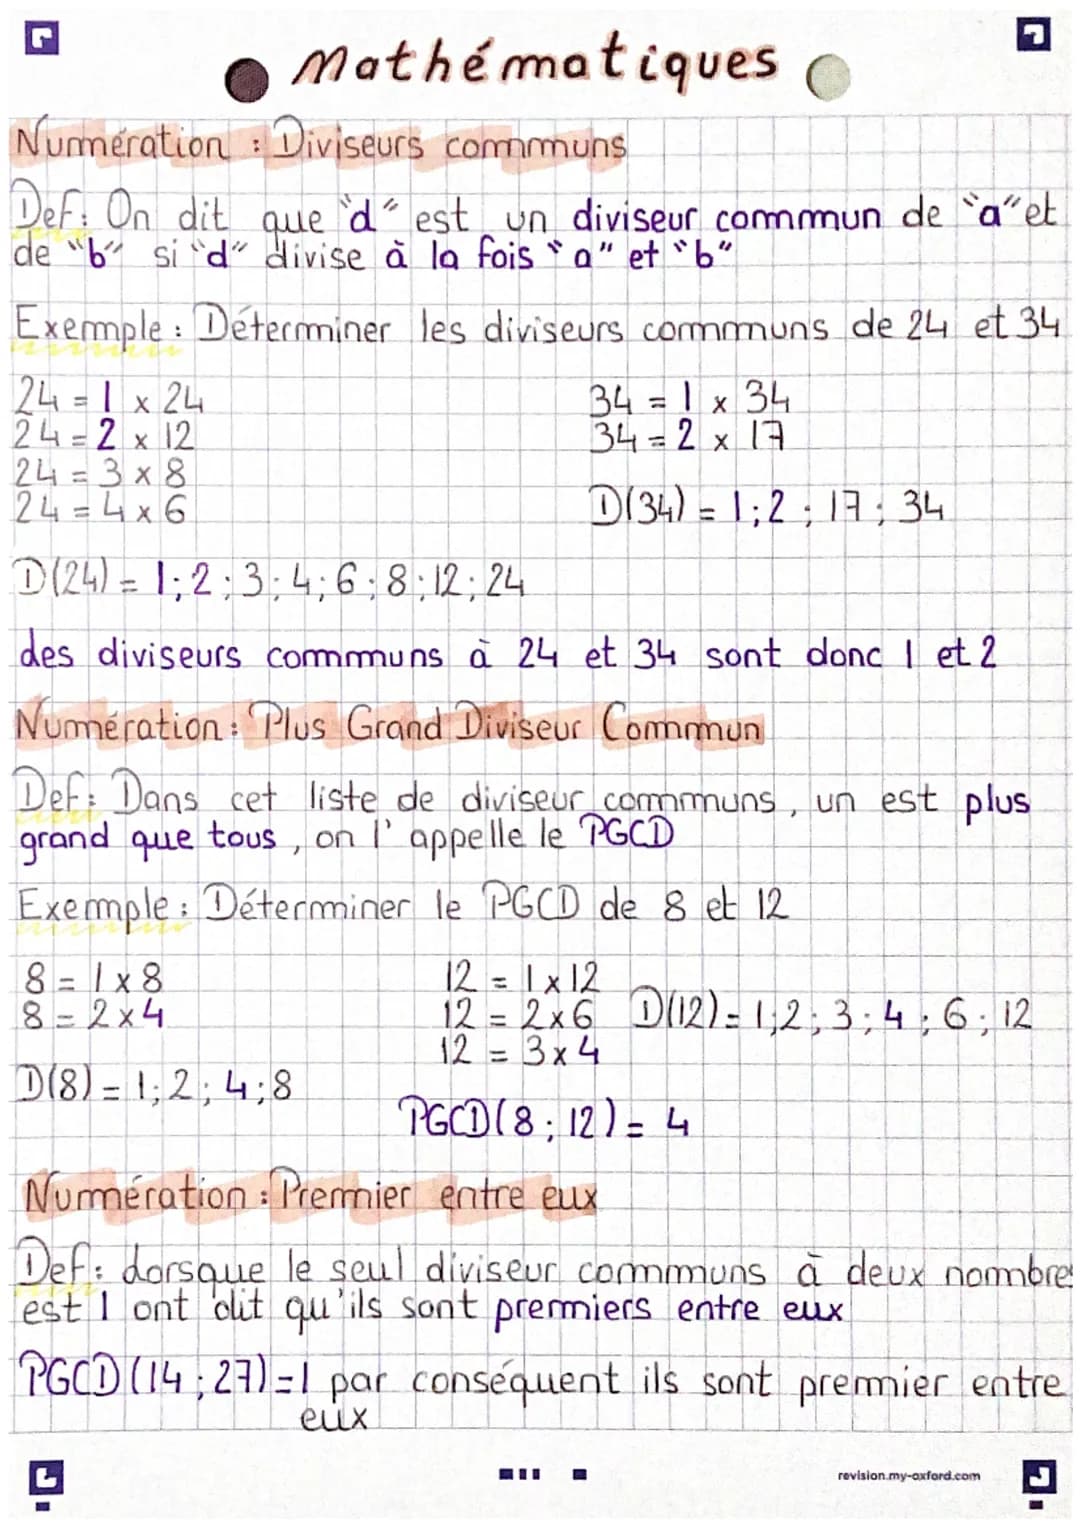 Mathématiques
Numération : Diviseurs communs
Def: On dit que "d" est un diviseur commun de "a" et
de "b" si "d" divise à la fois "a" et "b"
Exemple : Déterminer les diviseurs communs de 24 et 34
24 = 1 x 24
24 = 2 x 12
24 = 3 x 8
24 = 4 x 6
34 = 1 x 34
34 = 2 x 17
D(34) = 1; 2 ; 17 ; 34
D(24) = 1; 2 ; 3 ; 4 ; 6 ; 8 ; 12 ; 24
Les diviseurs communs à 24 et 34 sont donc 1 et 2
Numération : Plus Grand Diviseur Commun
Def: Dans cet liste de diviseur communs, un est plus
grand que tous, on l'appelle le PGCD
Exemple : Déterminer le PGCD de 8 et 12
8 = 1 x 8
8 = 2 x 4
D(8) = 1; 2 ; 4 ; 8
12 = 1 x 12
12 = 2 x 6
12 = 3 x 4
D(12) = 1; 2 ; 3 ; 4 ; 6 ; 12
PGCD (8 ; 12) = 4
Numération : Premier entre eux
Def: Lorsque le seul diviseur communs à deux nombres
est 1 ont dit qu'ils sont premiers entre eux
PGCD (14 ; 27) = 1 par conséquent ils sont premier entre
eux
revision.my-oxford.com